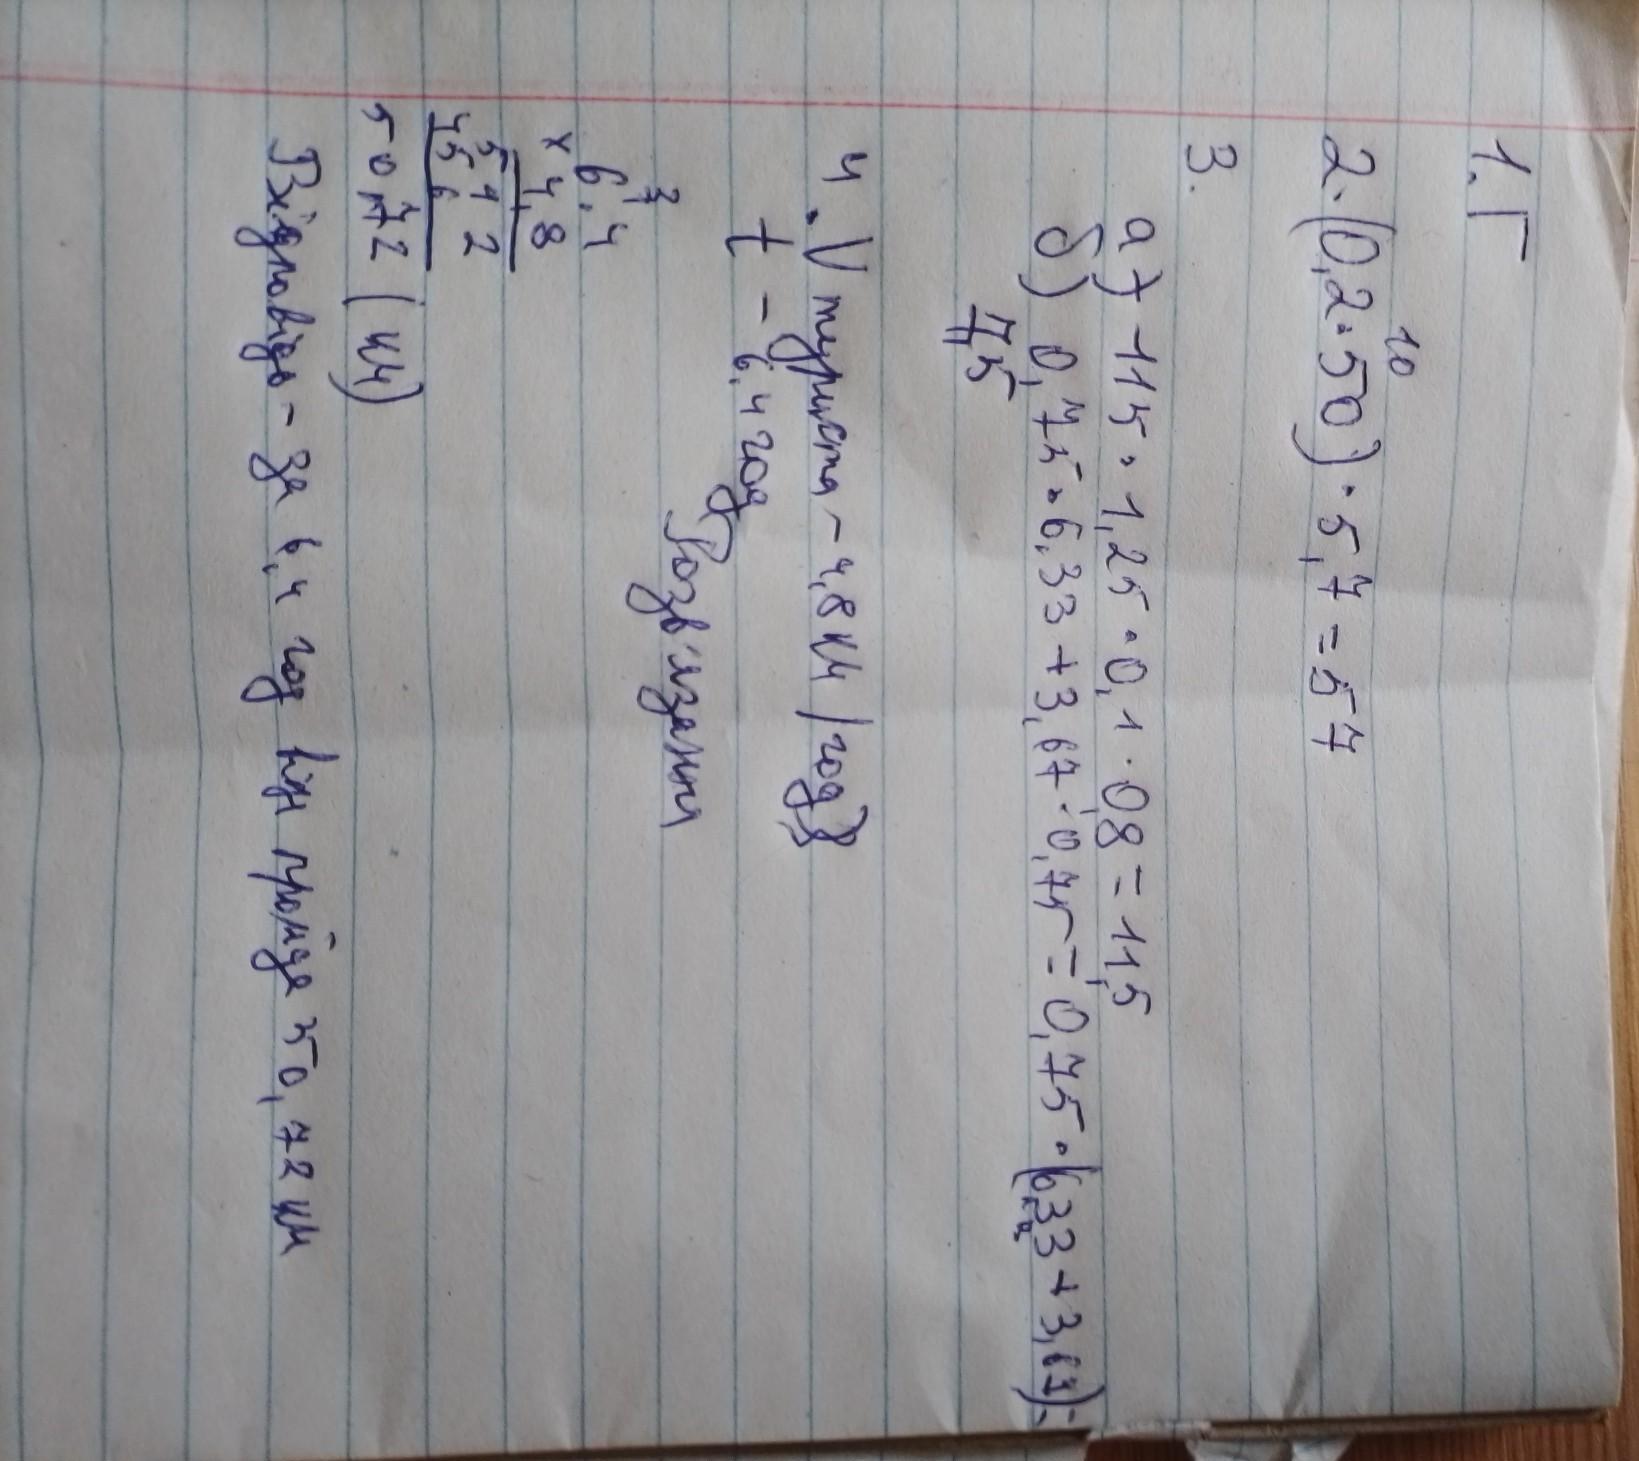 1. Г
10
2. (0,2 · 50) · 5,7 = 57
3.
а) 115 · 1,25 · 0,1 · 08 = 11,5
б) 0,75 · 6,33 + 3,67 · 0,75 = 0,75 · (6,33 + 3,67) =
7,5
4. V туриста – 4,8 км/год
t – 6,4 год
Розв'язання
6,4
× 4,8
512
456
50,72 (км)
Відповідь – за 6,4 год він пройде 50,72 км